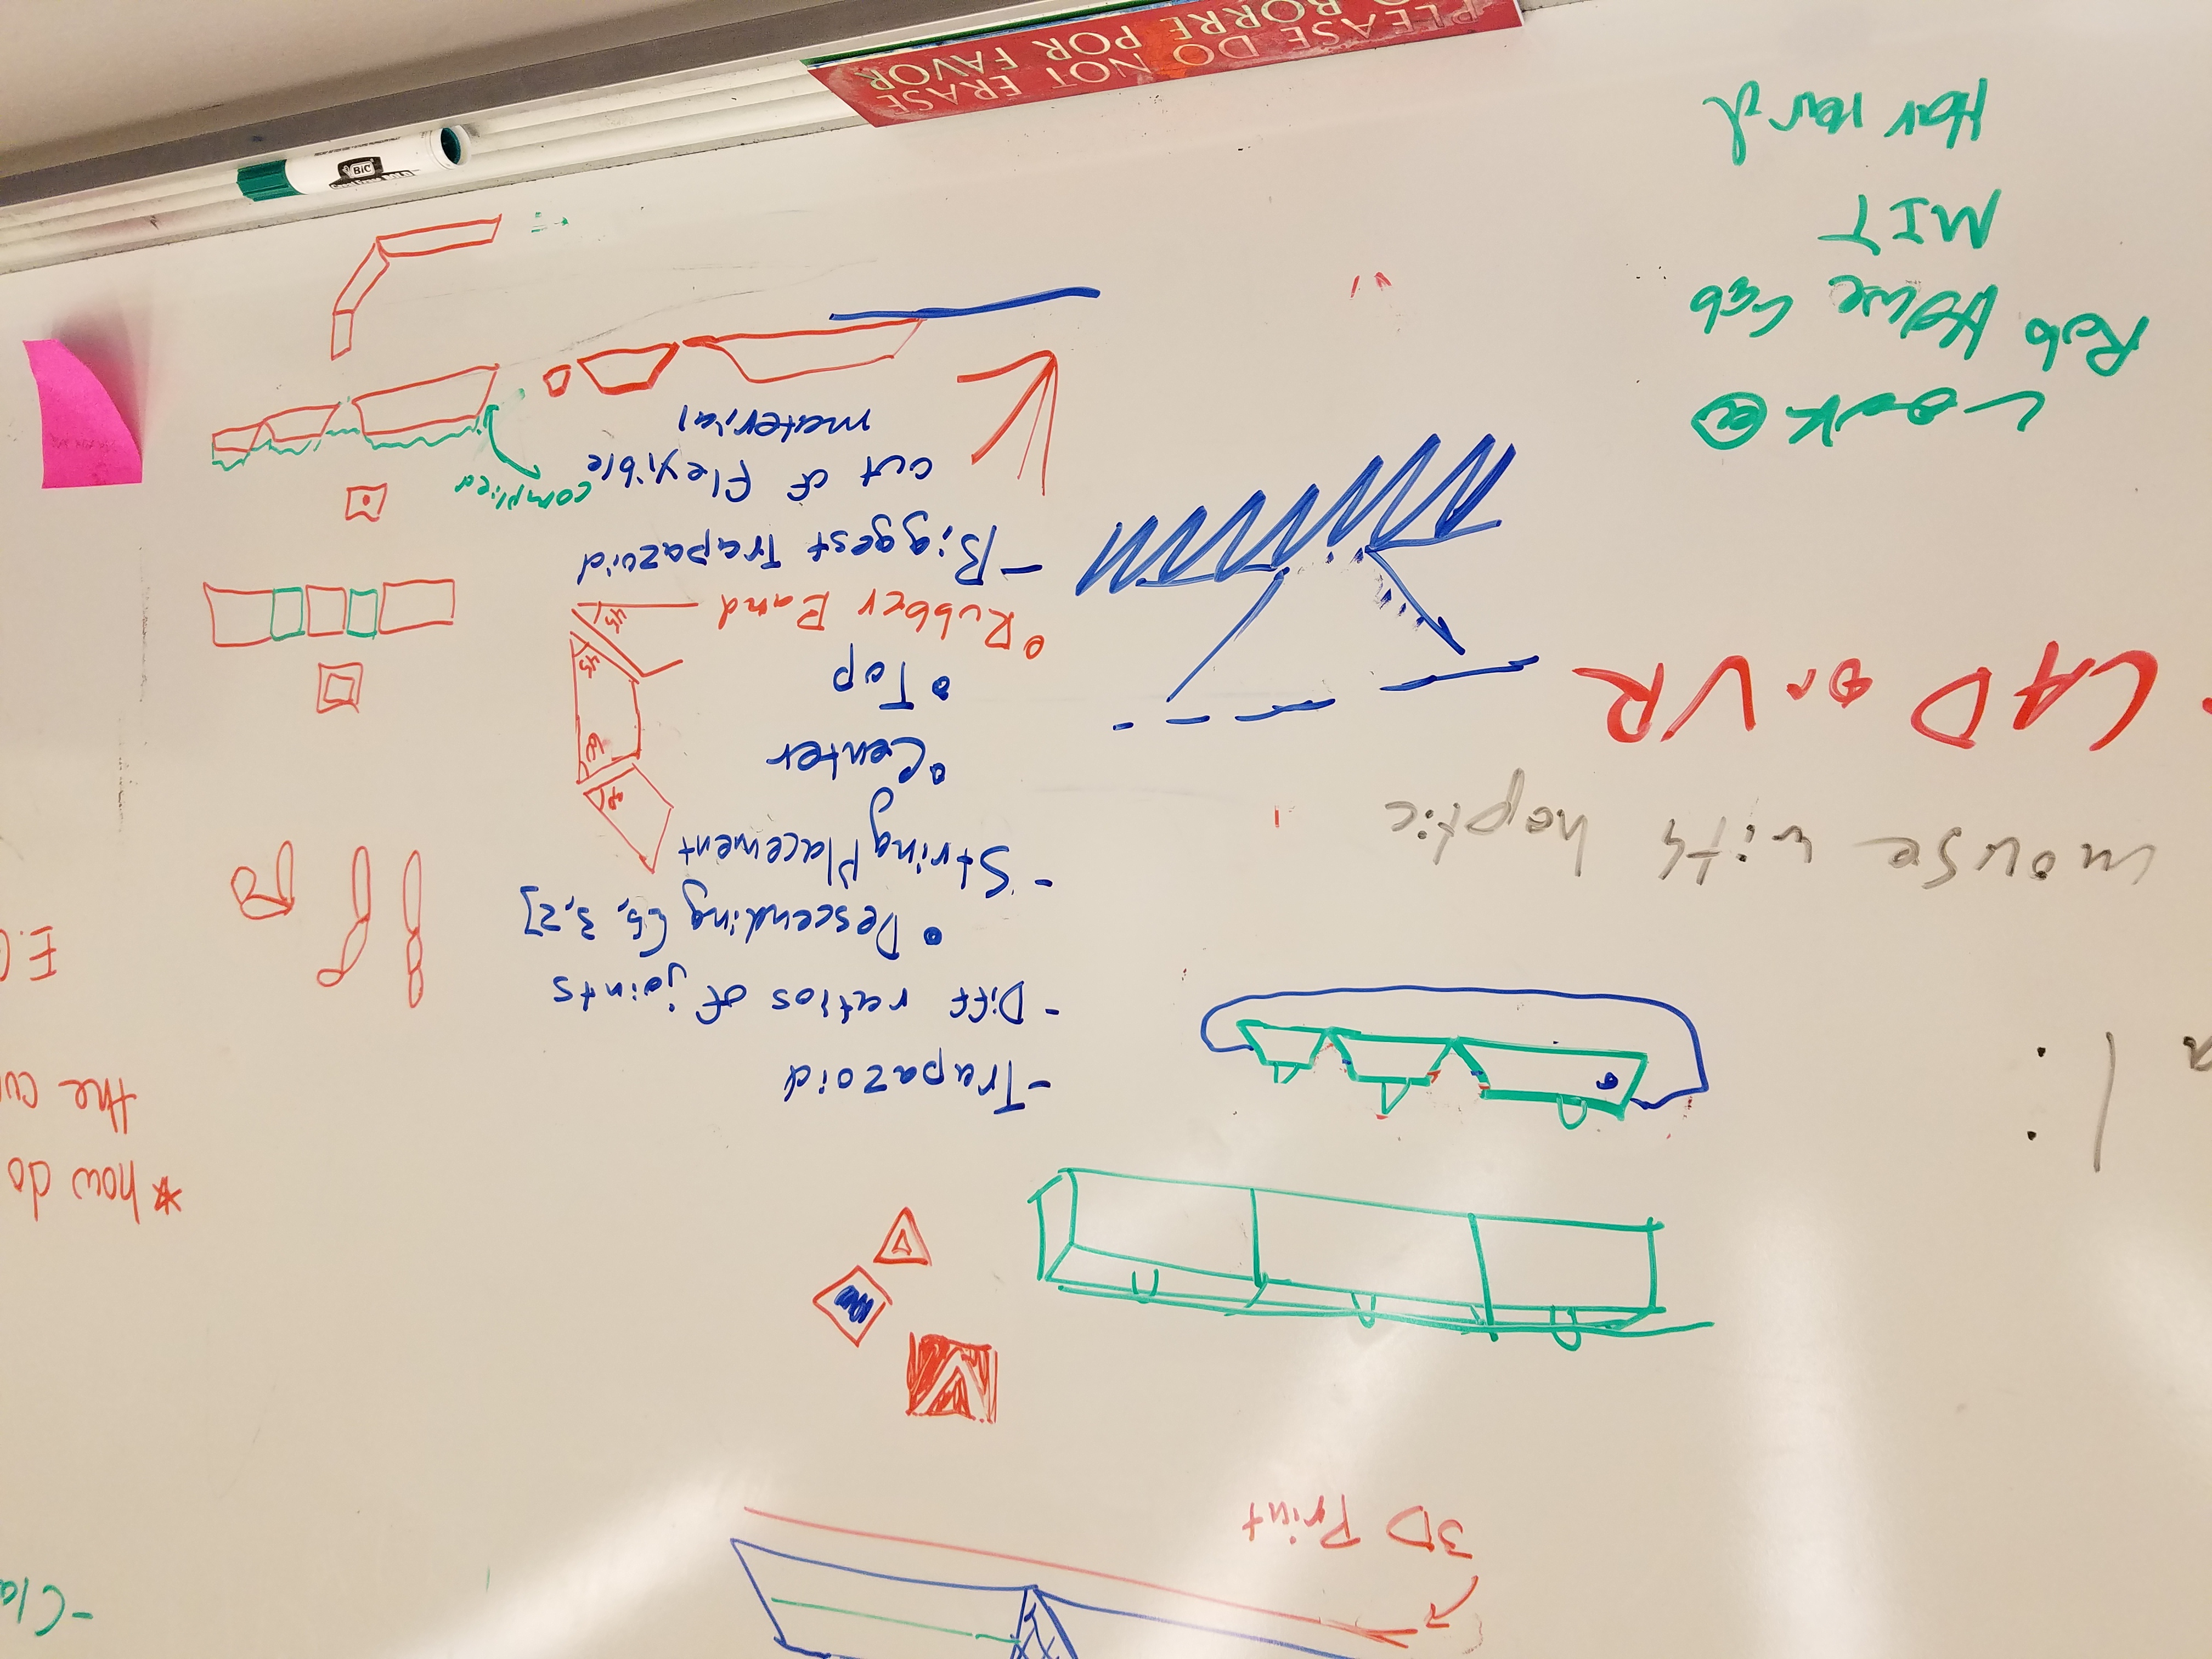 3D Print
-Trapazoid
-Diff ratios of joints
• Descending [5, 3, 2]
-String Placement
• Center
• Top
• Rubber Band
-Biggest Trapazoid
out of flexible
material
complied
45
45
mouse with haptic
CAD or VR
Look @
Rob Howe Lab
MIT
Harvard
*how do
the cu
E.
-Cla
BiC
PLEASE DO NOT ERASE
O BORRE POR FAVOR